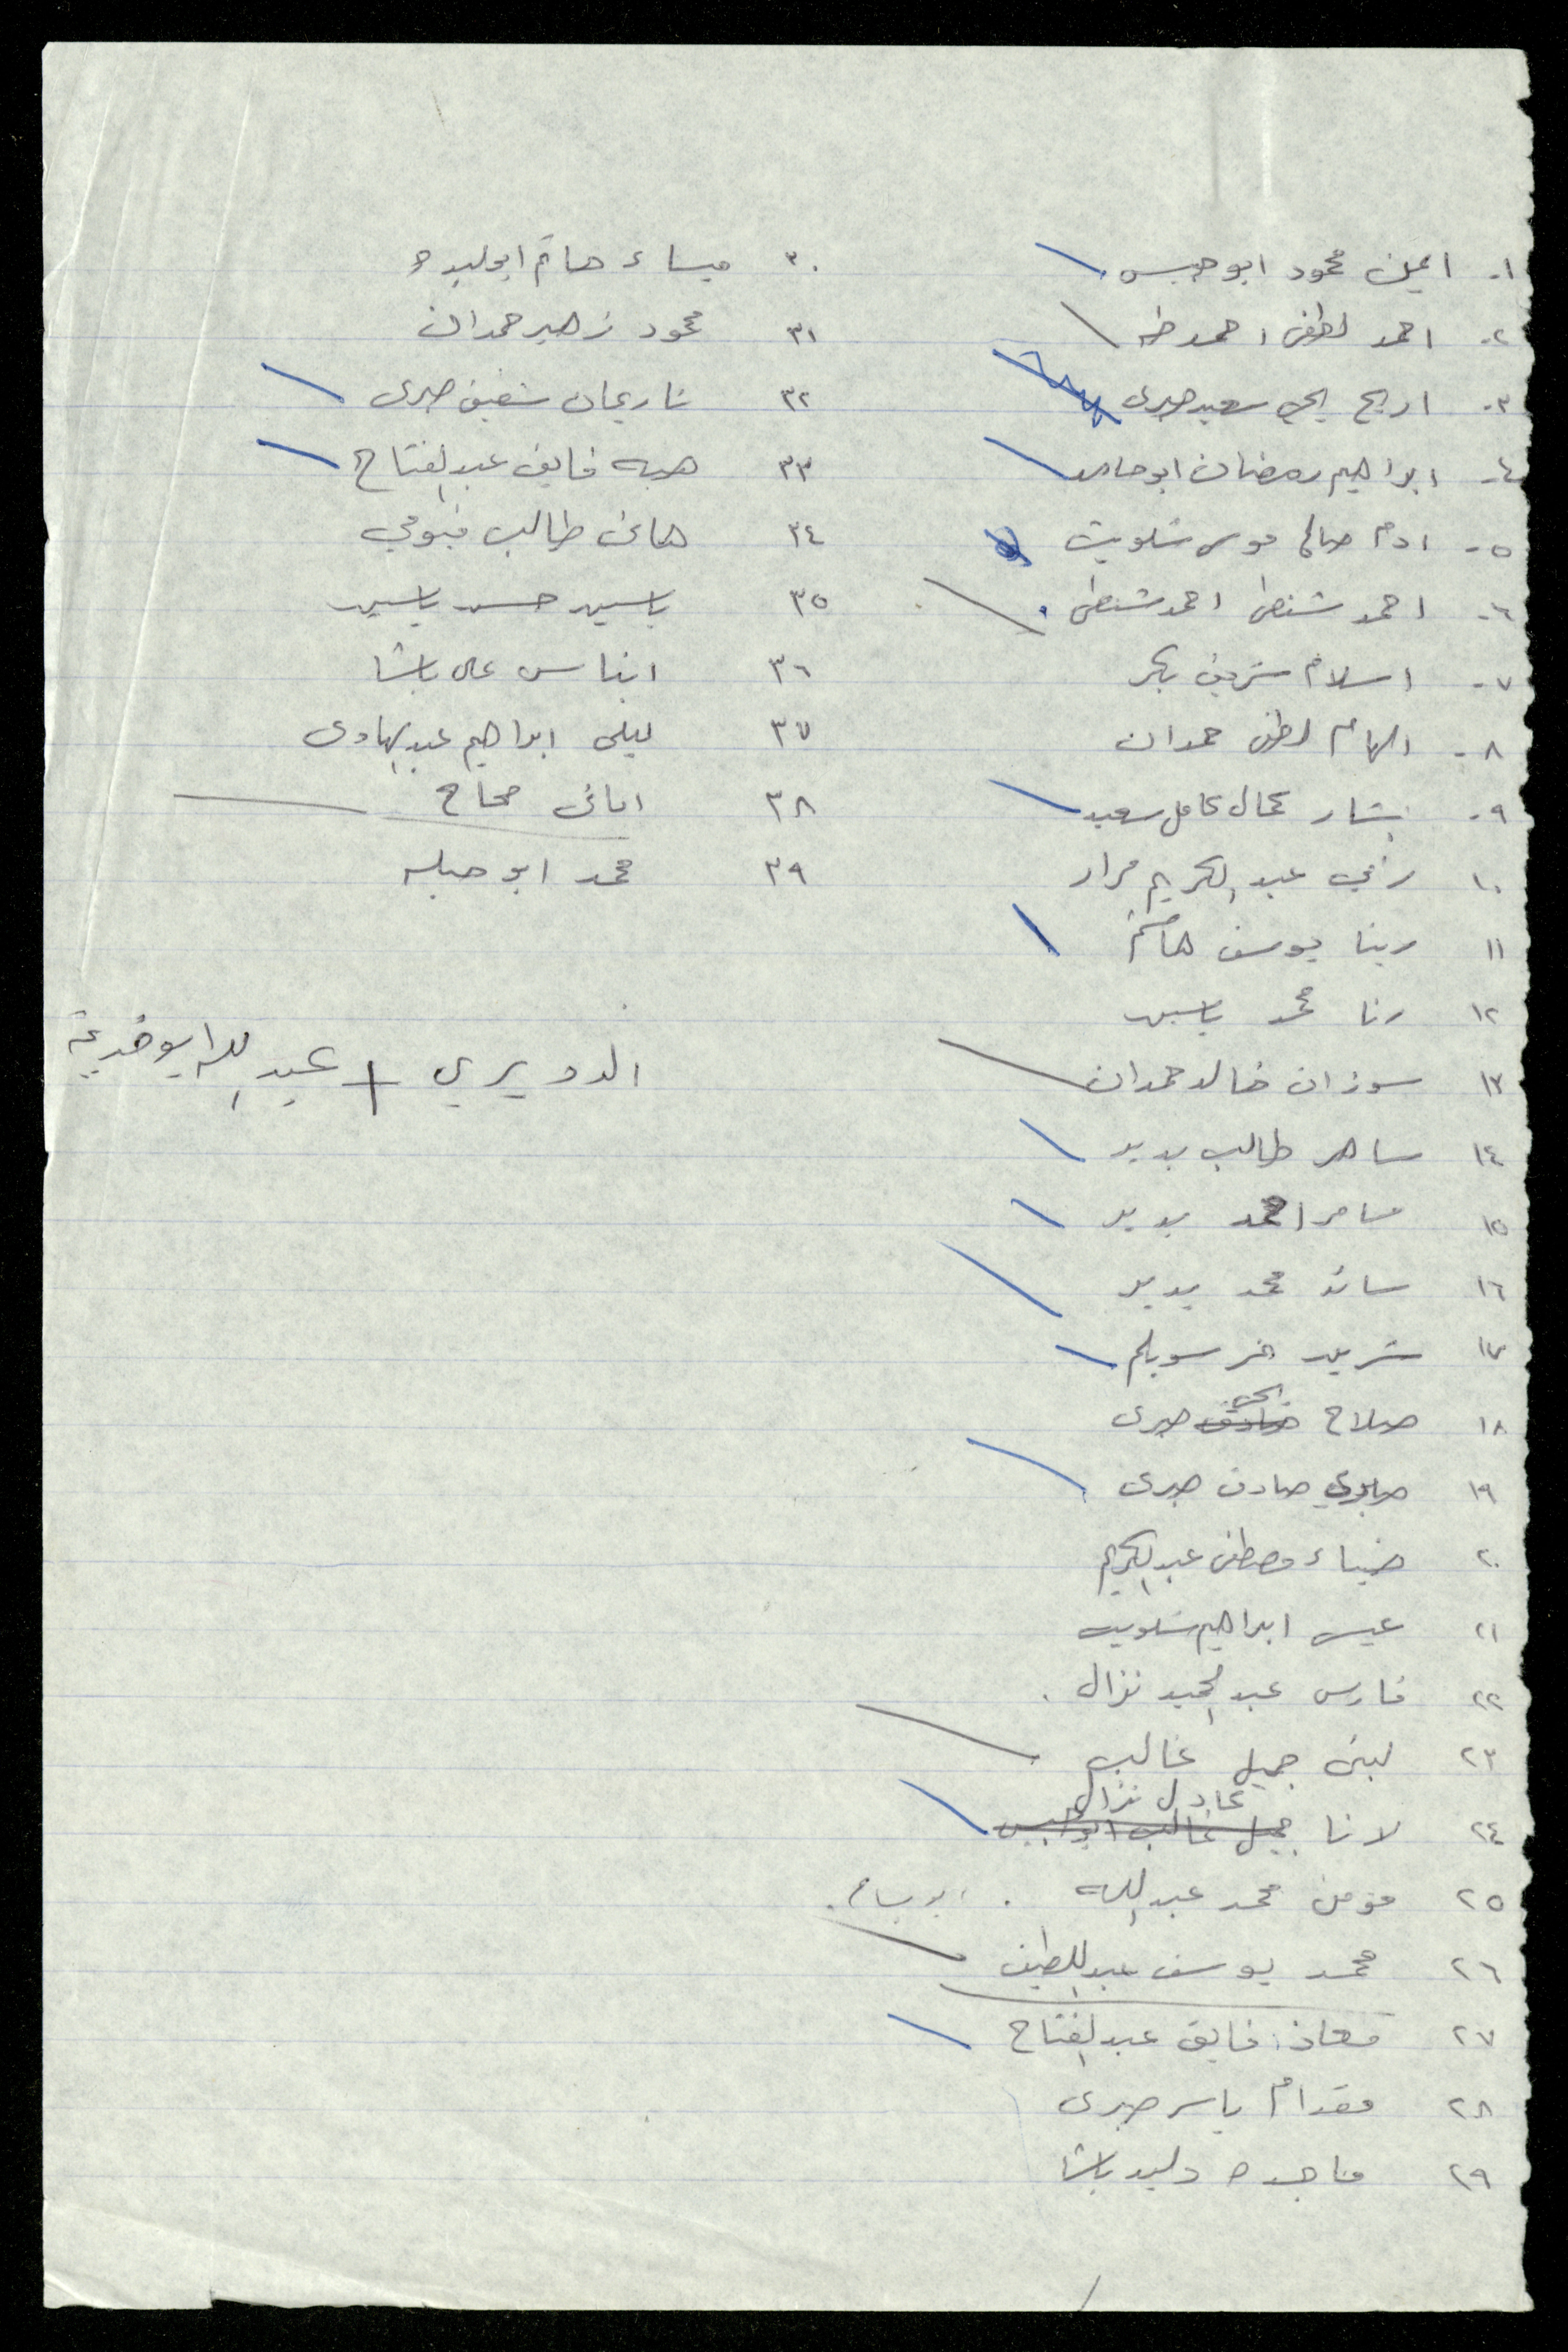 ١- ايمن محمود ابو حبسه
٢- احمد لطفي احمد طه
٣- اريج يحيى سعيد صبري
٤- ابراهيم رمضان ابو حامد
٥- ادم صالح موسى شلويت
٦- احمد شنطي احمد شنطي
٧- اسلام شريف بكر
٨- الهام لطفي حمدان
٩- بشار كمال كامل سعيد
١٠ رامي عبد الكريم مراد
١١ رينا يوسف هاشم
١٢ رنا محمد ياسين
١٣ سوزان خالد حمدان
١٤ ساهر طالب بدير
١٥ سامر احمد بدير
١٦ سائد محمد بدير
١٧ شرين سويلم
١٨ صلاح يحيى صبري
١٩ صبري صادق صبري
٢٠ ضياء مصطفى عبد الكريم
٢١ عيسى ابراهيم شلويت
٢٢ فارس عبد الحميد نزال
٢٣ لبنى جميل غالب
٢٤ لانا عادل نزال
٢٥ مؤمن محمد عبد الله
٢٦ محمد يوسف عبد اللطيف
٢٧ معاذ فايق عبد الفتاح
٢٨ مقدام ياسر صبري
٢٩ ماجده وليد باشا
٣٠ ميساء هاشم ابو لبده
٣١ محمود زهير حمدان
٣٢ ناريمان شفيق صبري
٣٣ هبه فايق عبد الفتاح
٣٤ هاني طالب فيومي
٣٥ ياسين حسن ياسين
٣٦ ايناس علي باشا
٣٧ ليلى ابراهيم عبد الهادي
٣٨ اماني حجاج
٣٩ محمد ابو حبله
الدويري + عبد الله ابو خديجة